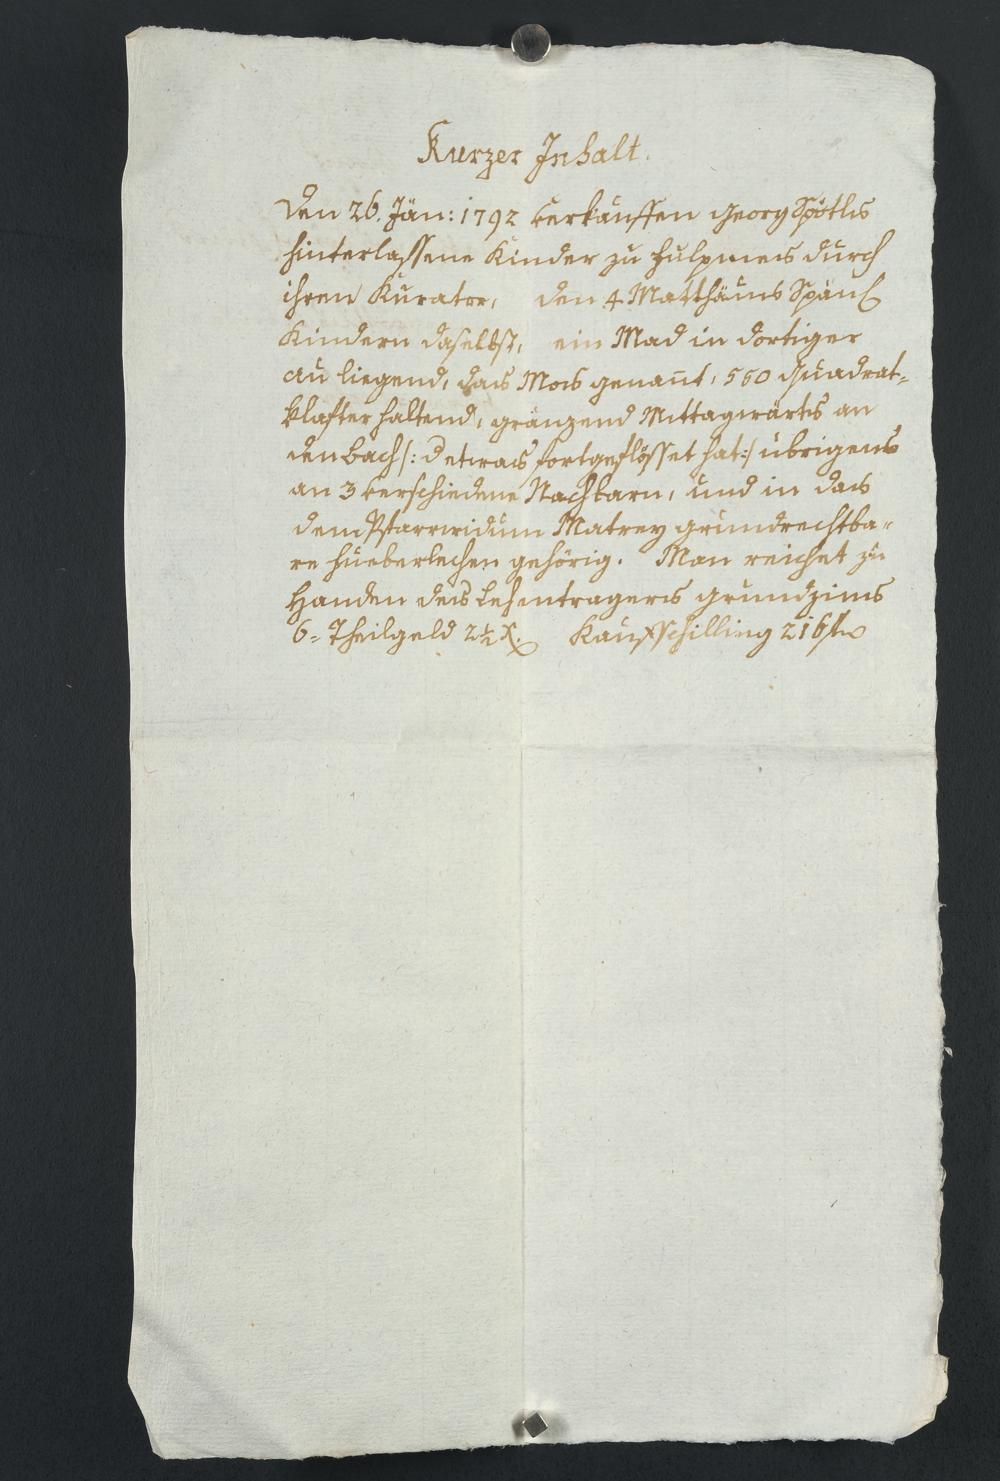 Kurzer Inhalt.
Den 26. Jän: 1792 verkauffen Georg Spötls
hinterlassene Kinder zu Fulpmes durch
ihren Kurator, den 4 Matthäus Spän
Kindern daselbst, ein Mad in dortiger
Au liegend, das Mos genannt, 560 Quadrat-
klafter haltend, gränzend Mittagwärts an
den Bach /: d etwas fortgeflösset hat :/ übrigens
an 3 verschiedene Nachbarn, und in das
dem Pfarrwidum Matrey grundrechtba-
re Hueberlechen gehörig. Man reichet zu
Handen des Lehentragers Grundzins
6. Theilgeld 2½ x. Kaufschilling 216 f